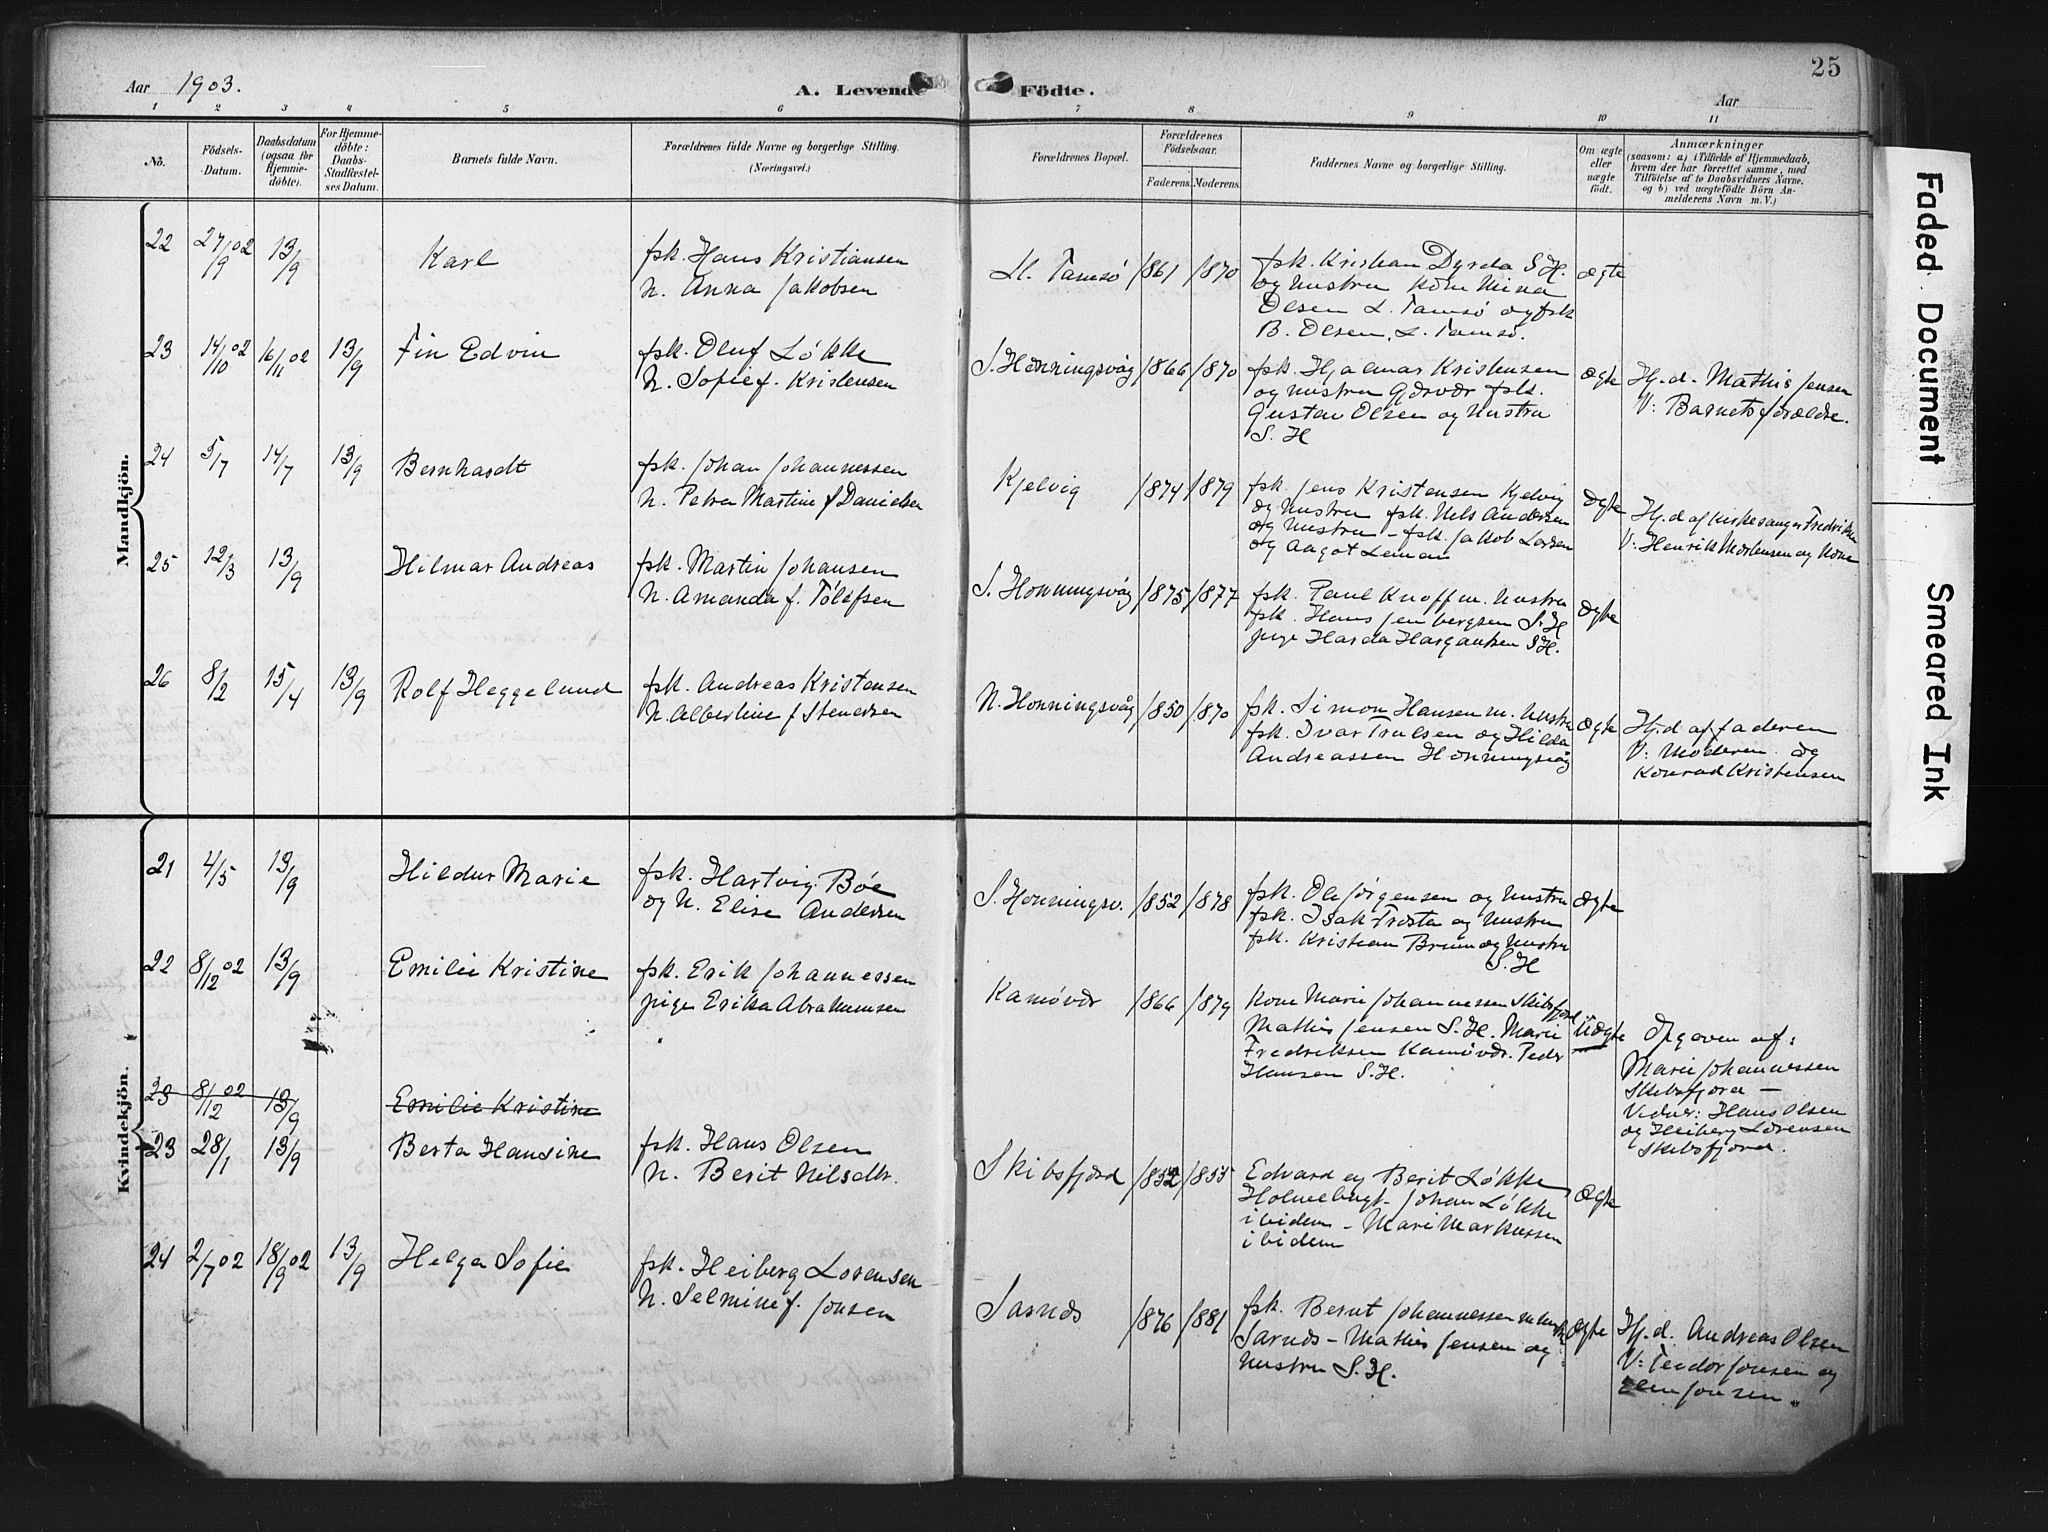 25
Aar 1903.
A. Levende Födte.
Aar
1 2 3 4 5 6 7 8 9 10 11
No.
Födsels-Datum.
Daabsdatum (ogsaa for Hjemmedöbte).
For Hjemmedöbte: Daabs-Stadfæstelses Datum.
Barnets fulde Navn.
Forældrenes fulde Navne og borgerlige Stilling.
(Næringsvei.)
Forældrenes Bopæl.
Forældrenes Födselsaar.
Faderens. Moderens.
Faddernes Navne og borgerlige Stilling.
Om ægte eller uægte födt.
Anmærkninger
(saasom: a) i Tilfælde af Hjemmedaab, hvem der har forrettet samme, med Tilföielse af to Daabsvidners Navne, og b) ved uægtefödte Börn Anmelderens Navn m. V.)
Mandkjön.
22 27/9 02 13/9 Karl
fsk. Hans Kristiansen
H. Anna Jakobsen
L. Tamsø 1861 1870
fsk. Kristian Dyrda S.H.
og Hustru Kone Mina
Olsen L. Tamsø og fsk
B. Olsen, L. Tamsø.
ægte
23 14/10 02 16/11 02 13/9 Fin Edvin
fsk. Oluf Løkke
H. Sofie f. Kristensen
S. Honningsvåg 1866 1870
fsk. Hjalmar Kristensen
og Hustru Gjesvær fsk.
Gustav Olsen og Hustru
S. H
ægte
Hj.d. Mathis Jensen
V: Barnets forældre.
24 5/7 14/7 13/9 Bernhardt
fsk. Johan Johannessen
H. Petra Martine f Danielsen
Kjelvig 1874 1879
fsk. Jens Kristensen Kjelvig
og Hustru fsk. Nels Andersen
og Hustru - fsk. Jakob Larsen
og Aagot Leman
ægte
Hj.d af kirkesanger Fredriksen
V: Henrik Mortensen og Kone
25 12/3 13/9 Hilmar Andreas
fsk. Martin Johansen
H. Amanda f. Tolefsen
S. Honningsvåg 1875 1877
fsk. Paul Knoff m. Hustru
fsk. Hans Jenbergsen S.H
pige Harda Hargausen S.H.
ægte
26 8/2 15/4 13/9 Rolf Heggelund
fsk. Andreas Kristensen
H. Albertine f Stenersen
N. Honningsvåg 1850 1870
fsk. Simon Hansen m. Hustru
fsk. Ivar Trulsen og Hilda
Andreassen Honningsvåg
ægte
Hj.d af faderen
V: Moderen og
Konrad Kristensen
Kvindekjön.
21 4/5 13/9 Hildur Marie
fsk. Hartvig Bøe
og H. Elise Andersen
S. Honningsv. 1852 1878
fsk. Ole Jørgensen og Hustru
fsk. Isak Frosta og Hustru
fsk. Kristian Bruun og Hustru
S. H
ægte
22 8/12 02 13/9 Emilie Kristine
fsk. Erik Johannessen
pige Erika Abrahamsen
Kamøvær 1866 1879
Kone Marie Johannessen Skibsfjord
Mathis Jensen S. H. Marie
Fredriksen Kamøvær. Peder
Hansen S.H.
Uægte
Opgaven af:
Marie Johannessen
Skibsfjord —
Vidner: Hans Olsen
og Heiberg Lorensen
Skibsfjord.
23 8/12 02 13/9 Emilie Kristine
23 28/1 13/9 Berta Hansine
fsk. Hans Olsen
H. Berit Nilsdtr.
Skibsfjord 1852 1855
Edvard og Berit Løkke
Holmebugt - Johan Løkke
ibidem - Mari Markussen
ibidem
ægte
24 2/7 02 18/9 02 13/9 Helga Sofie
fsk. Heiberg Lorensen
H. Selmine f. Jonsen
Sarnæs 1876 1881
fsk. Bernt Johannessen m. Hustru
Sarnæs - Mathis Jensen og
Hustru S. H.
ægte
Hj.d. Andreas Olsen
V: Teodor Jonsen og
Elen Jonsen.
Faded Document
Smeared Ink